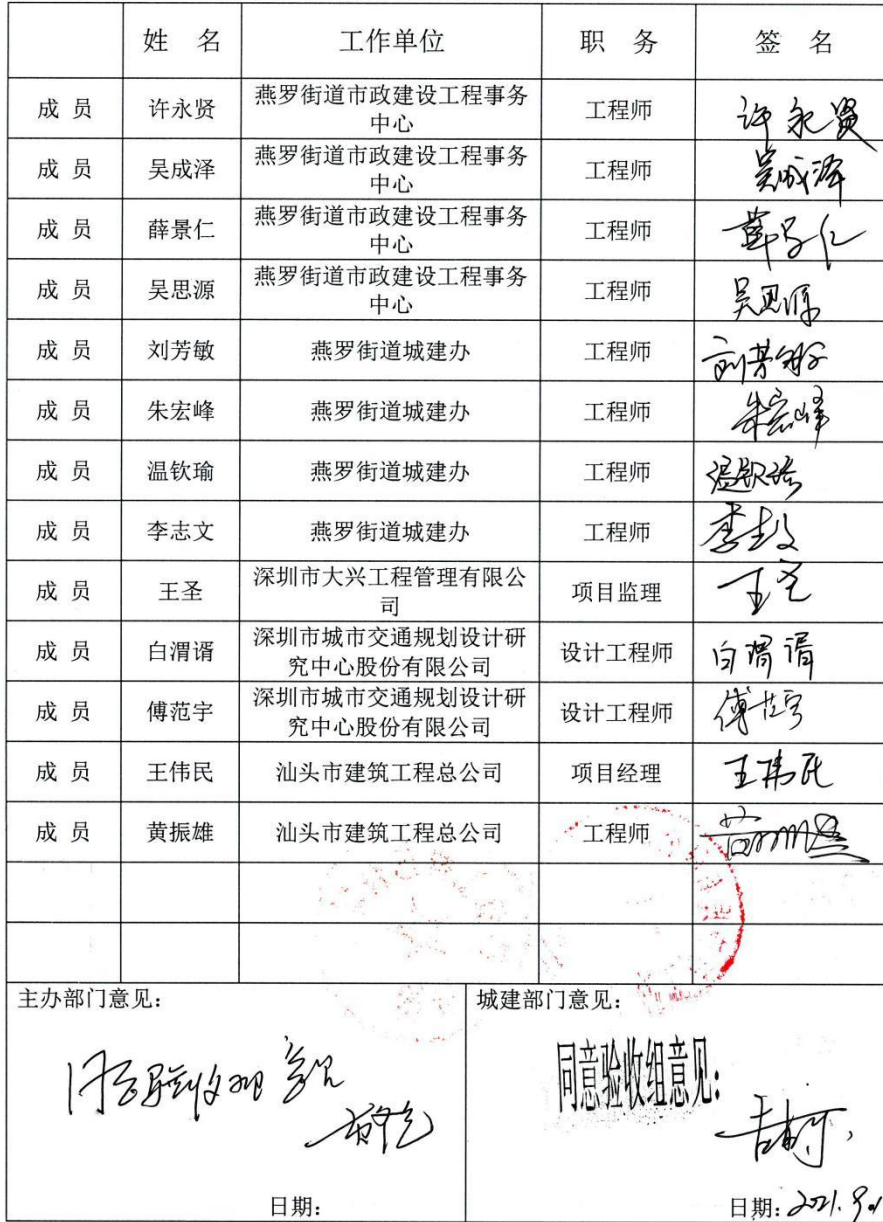 姓 名 工作单位 职 务 签 名
成 员 许永贤 燕罗街道市政建设工程事务 工程师 许永贤
中心
成 员 吴成泽 燕罗街道市政建设工程事务 工程师 吴成泽
中心
成 员 薛景仁 燕罗街道市政建设工程事务 工程师 薛景仁
中心
成 员 吴思源 燕罗街道市政建设工程事务 工程师 吴思源
中心
成 员 刘芳敏 燕罗街道城建办 工程师 刘芳敏
成 员 朱宏峰 燕罗街道城建办 工程师 朱宏峰
成 员 温钦瑜 燕罗街道城建办 工程师 温钦瑜
成 员 李志文 燕罗街道城建办 工程师 李志文
成 员 王圣 深圳市大兴工程管理有限公 项目监理 王圣
司
成 员 白渭谞 深圳市城市交通规划设计研 设计工程师 白渭谞
究中心股份有限公司
成 员 傅范宇 深圳市城市交通规划设计研 设计工程师 傅范宇
究中心股份有限公司
成 员 王伟民 汕头市建筑工程总公司 项目经理 王伟民
成 员 黄振雄 汕头市建筑工程总公司 工程师
主办部门意见：
同意验收组意见
日期：
城建部门意见：
同意验收组意见：
日期：2021.9.1